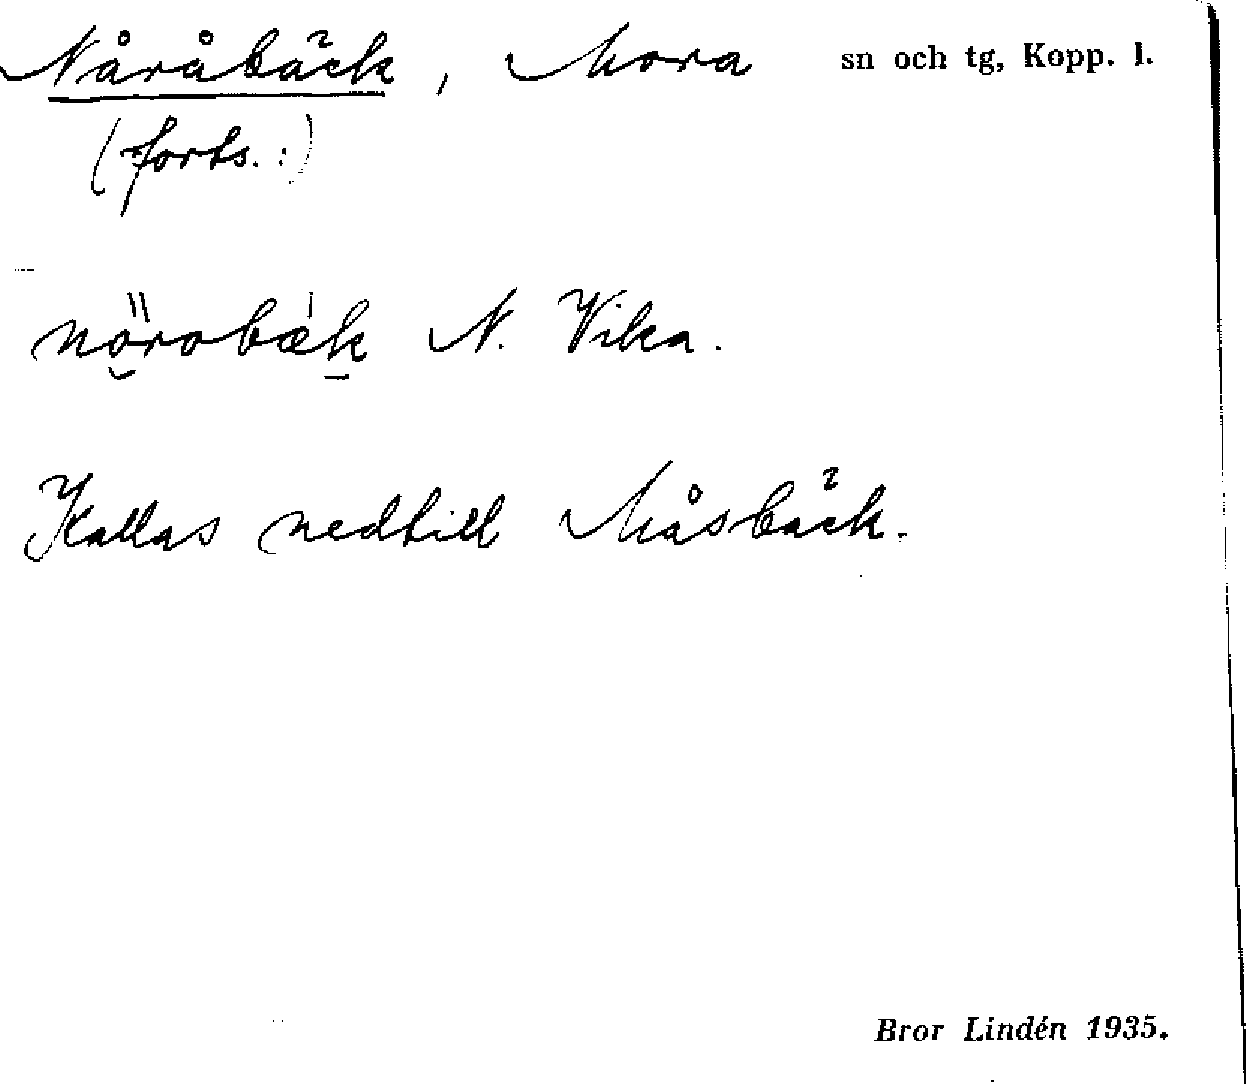 Nåråbäck, Mora sn och tg, Kopp. l.
(forts.:)
nörobæk N. Vika.
Kallas nedtill Måsbäck.
Bror Lindén 1935.